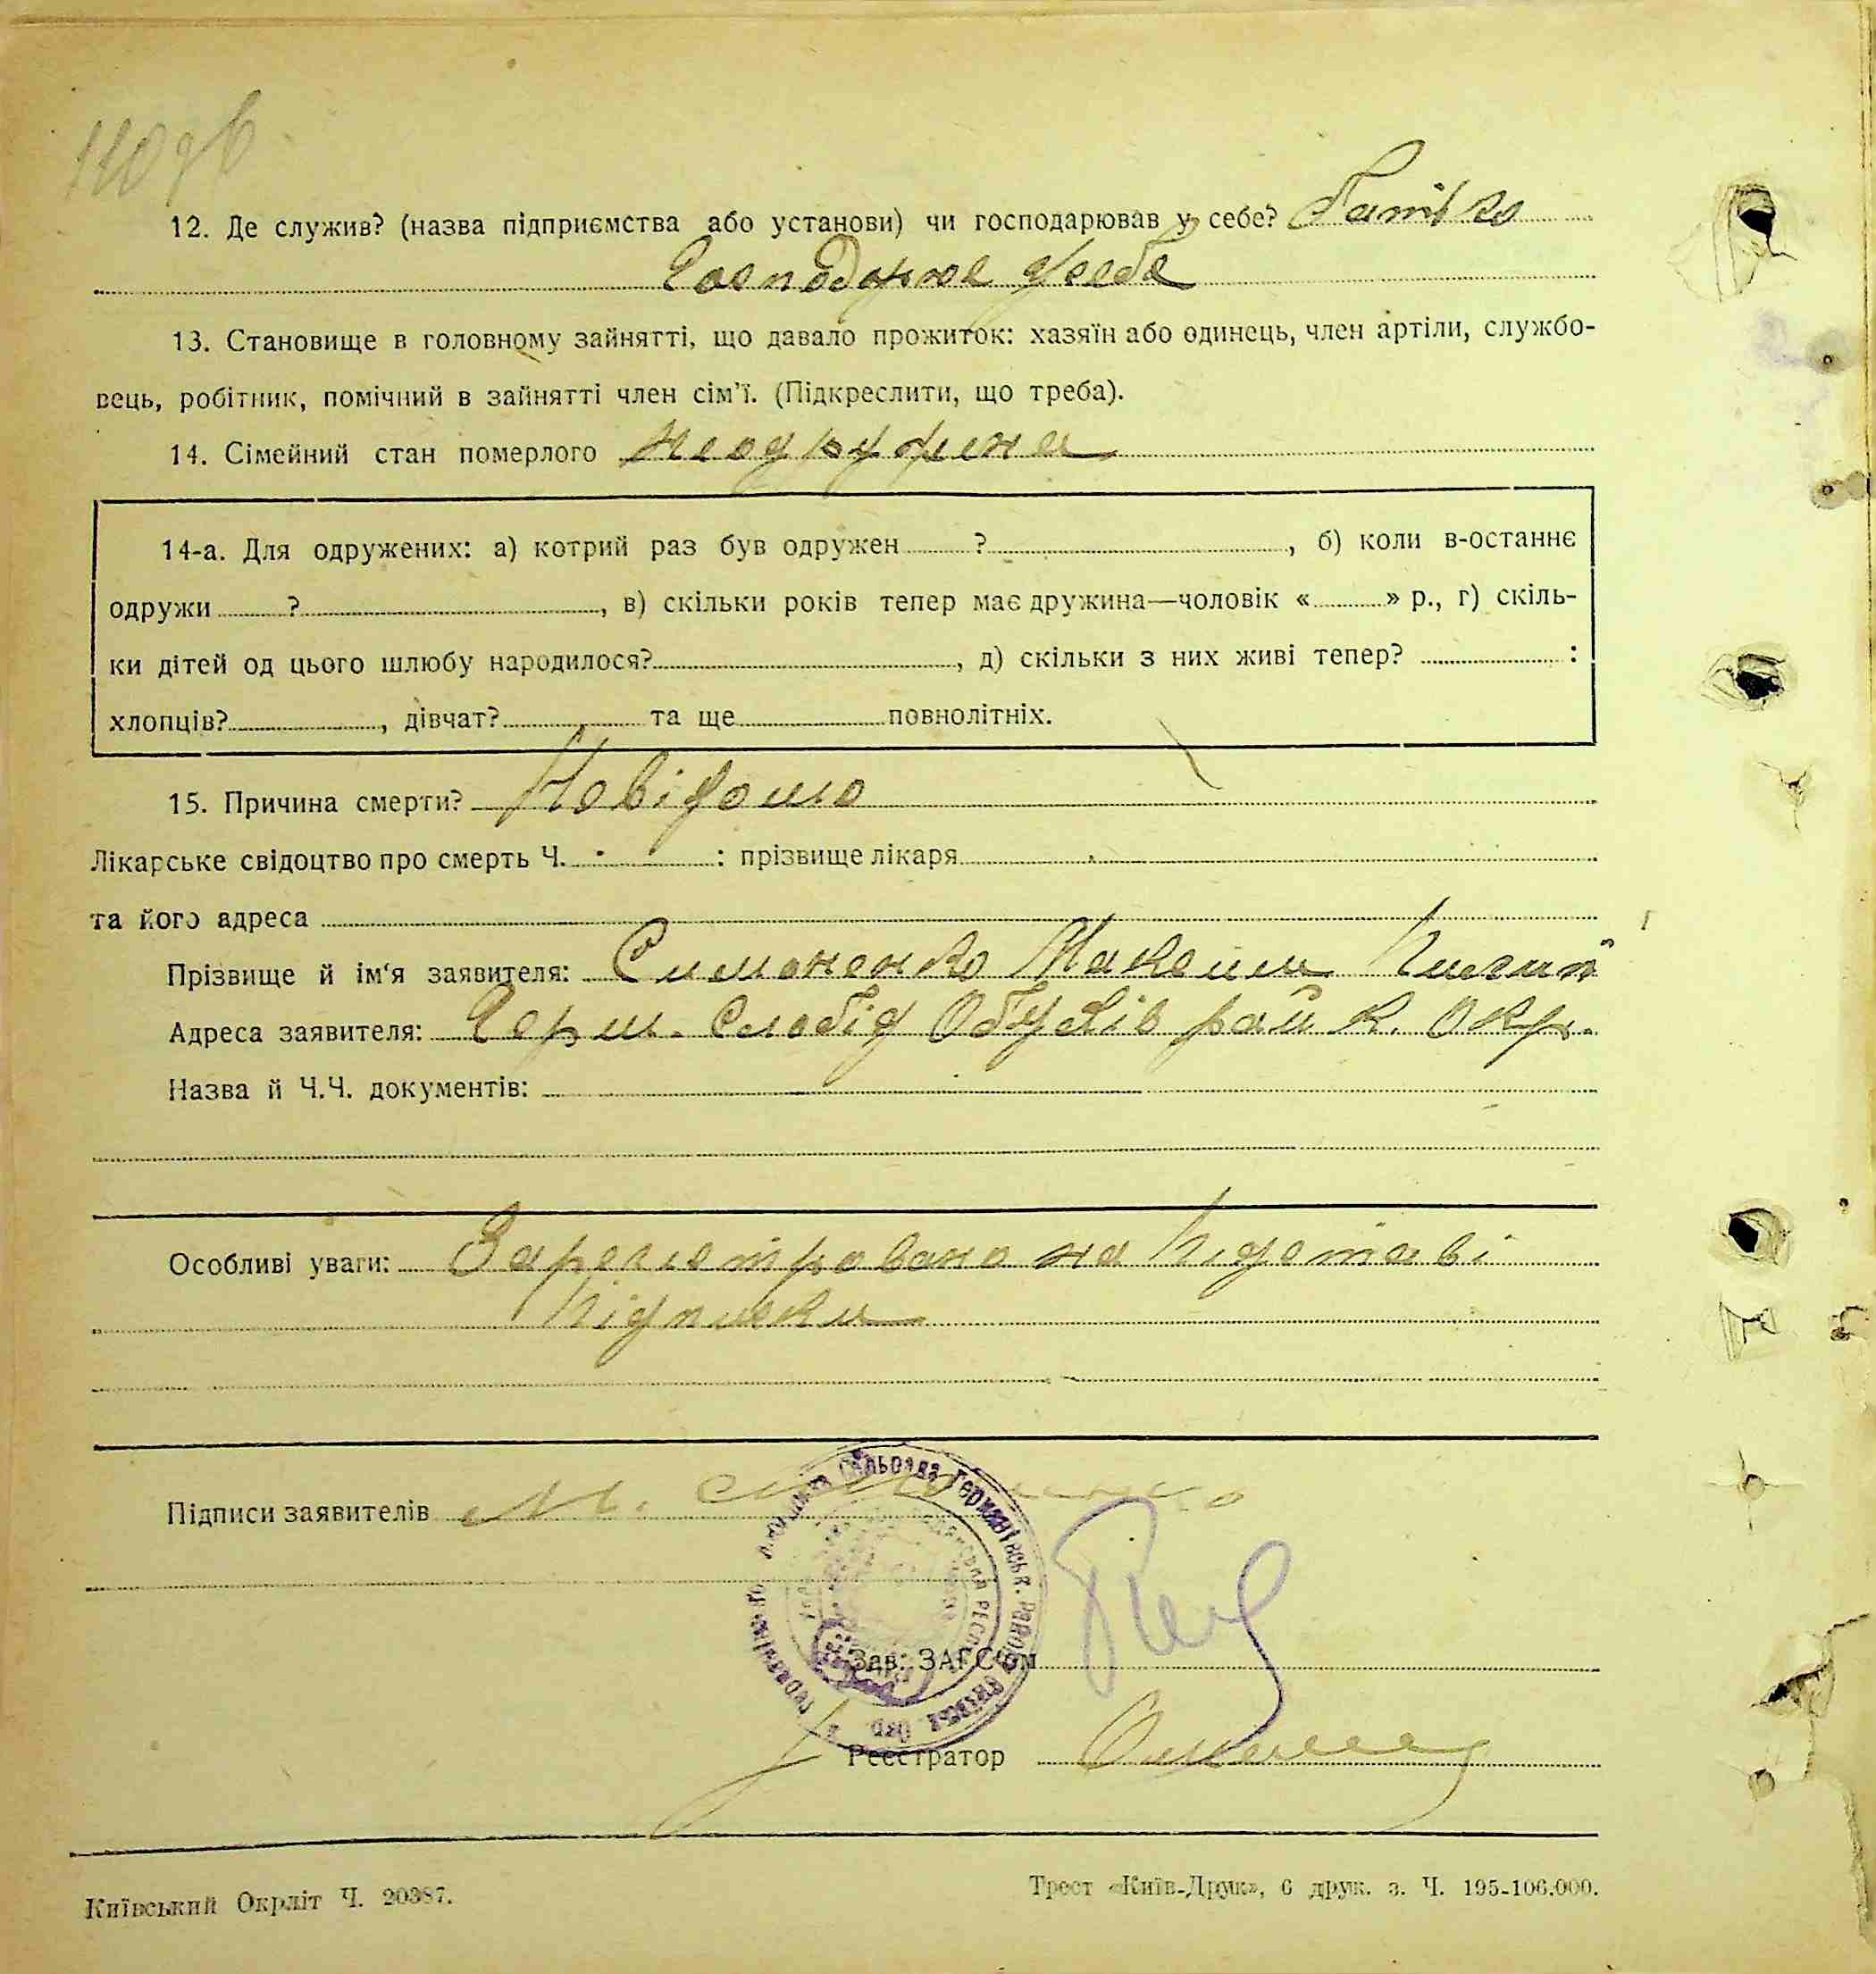 110 зв
12. Де служив? (назва підприємства або установи) чи господарював у себе? Батько
Господарює у себе
13. Становище в головному зайнятті, що давало прожиток: хазяїн або одинець, член артіли, службо-
вець, робітник, помічний в зайнятті член сім'ї. (Підкреслити, що треба).
14. Сімейний стан померлого неодружена
14-а. Для одружених: а) котрий раз був одружен ?, б) коли в-останнє
одружи ?, в) скільки років тепер має дружина—чоловік « » р., г) скіль-
ки дітей од цього шлюбу народилося?, д) скільки з них живі тепер? :
хлопців?, дівчат? та ще повнолітніх.
15. Причина смерти? Невідомо
Лікарське свідоцтво про смерть Ч. : прізвище лікаря
та його адреса
Прізвище й ім'я заявителя: Симоненко Максим
Адреса заявителя: Герм. Слобід Обухів рай К. Окр.
Назва й Ч.Ч. документів:
Особливі уваги: Зарегистровано на Підставі
Підписки
Підписи заявителів М. Симоненко
Зав. ЗАГСом
Реєстратор
Київський Окрліт Ч. 20387.
Трест «Київ-Друк», 6 друк. з. Ч. 195-106.000.